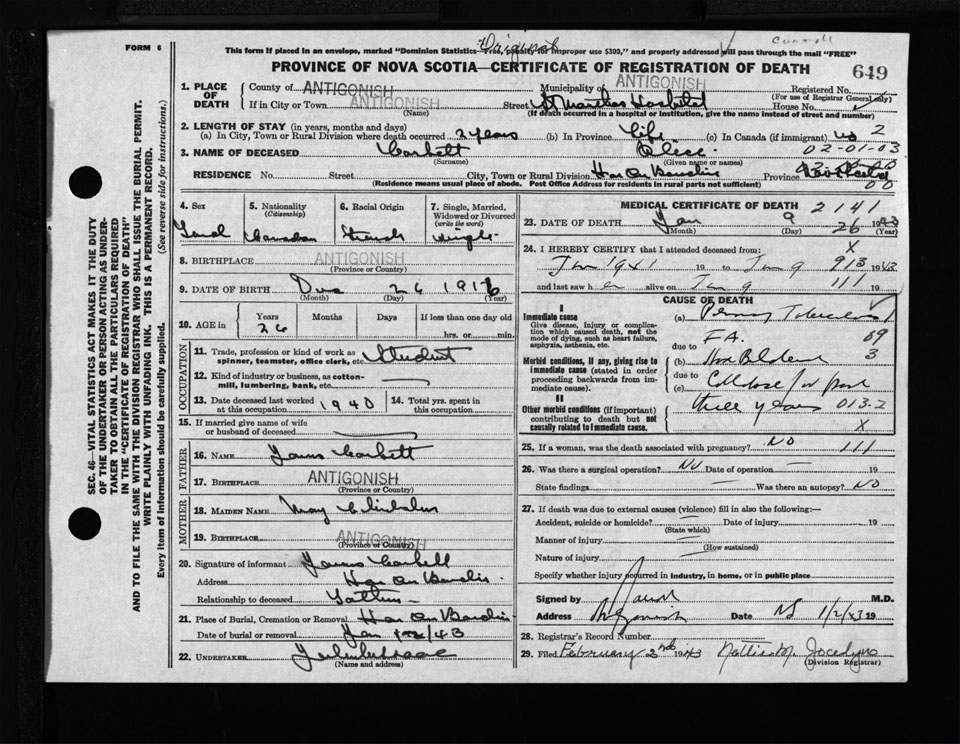 FORM 6
This form if placed in an envelope, marked "Dominion Statistics—Free, penalty for improper use $300," and properly addressed will pass through the mail "FREE"
PROVINCE OF NOVA SCOTIA—CERTIFICATE OF REGISTRATION OF DEATH
649
1. PLACE OF DEATH
County of ANTIGONISH Municipality of ANTIGONISH Registered No.
(For use of Registrar General only)
If in City or Town ANTIGONISH Street St Marthas Hospital House No.
(Name) (If death occurred in a hospital or institution, give the name instead of street and number)
2. LENGTH OF STAY (in years, months and days)
(a) In City, Town or Rural Division where death occurred 2 years (b) In Province Life (c) In Canada (if immigrant) 2
02-01-03
3. NAME OF DECEASED Corbett Alice
(Surname) (Given name or names)
RESIDENCE No. Street City, Town or Rural Division Har Au Bouche Province Nova Scotia
(Residence means usual place of abode. Post Office Address for residents in rural parts not sufficient)
SEC. 46—VITAL STATISTICS ACT MAKES IT THE DUTY
OF THE UNDERTAKER OR PERSON ACTING AS UNDER-
TAKER TO OBTAIN ALL THE PARTICULARS REQUIRED
IN THE "CERTIFICATE OF REGISTRATION OF DEATH"
AND TO FILE THE SAME WITH THE DIVISION REGISTRAR WHO SHALL ISSUE THE BURIAL PERMIT.
WRITE PLAINLY WITH UNFADING INK. THIS IS A PERMANENT RECORD.
Every item of information should be carefully supplied. (See reverse side for instructions.)
4. Sex
5. Nationality (Citizenship) Canadian
6. Racial Origin French
7. Single, Married, Widowed or Divorced (write the word) Single
8. BIRTHPLACE ANTIGONISH
(Province or County)
9. DATE OF BIRTH Dec 26 1916
(Month) (Day) (Year)
10. AGE in Years Months Days If less than one day old
26 hrs. or min.
OCCUPATION
11. Trade, profession or kind of work as spinner, teamster, office clerk, etc. Student
12. Kind of industry or business, as cotton-mill, lumbering, bank, etc.
13. Date deceased last worked at this occupation 1940 14. Total yrs. spent in this occupation
15. If married give name of wife or husband of deceased
FATHER
16. NAME James Corbett
17. BIRTHPLACE ANTIGONISH
(Province or Country)
MOTHER
18. MAIDEN NAME May
19. BIRTHPLACE ANTIGONISH
(Province or Country)
20. Signature of informant James Corbett
Address Har Au Bouche
Relationship to deceased Father
21. Place of Burial, Cremation or Removal Har Au Bouche
Date of burial or removal Jan /43
22. UNDERTAKER
(Name and address)
MEDICAL CERTIFICATE OF DEATH 2141
23. DATE OF DEATH Jan 9 26 1943
(Month) (Day) (Year)
24. I HEREBY CERTIFY that I attended deceased from: X
Jan 1941 19 to Jan 9 913 1943
and last saw her alive on Jan 9 111 19
CAUSE OF DEATH
I
Immediate cause
Give disease, injury or complication which caused death, not the mode of dying, such as heart failure, asphyxia, asthenia, etc.
(a)
due to
Morbid conditions, if any, giving rise to immediate cause (stated in order proceeding backwards from immediate cause).
(b)
due to
(c)
II
Other morbid conditions (if important) contributing to death but not causally related to immediate cause.
three years 013-2
X
25. If a woman, was the death associated with pregnancy? NO 111
26. Was there a surgical operation? No Date of operation 19
State findings Was there an autopsy? NO
27. If death was due to external causes (violence) fill in also the following:—
Accident, suicide or homicide? Date of injury 19
(State which)
Manner of injury
(How sustained)
Nature of injury
Specify whether injury occurred in industry, in home, or in public place
Signed by M.D.
Address Antigonish Date NS 1/2/43 19
28. Registrar's Record Number
29. Filed February 2nd 1943 Nettie M. Jocelyn
(Division Registrar)